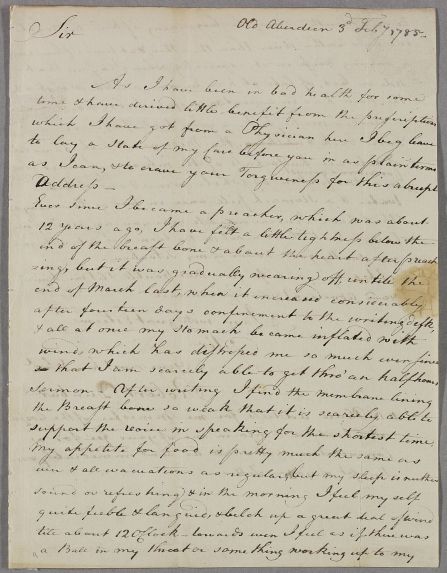 Old Aberdeen 3d Feby 1785
Sir
As I have been in bad health for some
time & have derived little benefit from the prescriptions
which I have got from a Physician here I beg leave
to lay a State of my Case before you in as plain terms
as I can, & to crave your Forgiveness for this abrupt
Address —
Ever since I became a preacher, which was about
12 years ago, I have felt a little tightness below the
end of the breast bone & about the heart after preach
ing; but it was gradually wearing off, untile the
end of March last, when it increased considerably
after fourteen days confinement to the writing desk
& all at once my stomach became inflated with
wind, which has distressed me so much ever since
that I am scarcely able to get thro' an half hours
Sermon — After writing I find the membrane lining
the Breast bone so weak that it is scarcely able to
support the voice in speaking for the shortest time,
my appetite for food is pretty much the same as
ever & all evacuations as regular, but my sleep is neither
sound or refreshing & in the morning I feel my self
quite feeble & languid, & belch up a great deal of wind
till about 12 O'Clock — towards even I feel as if there was
a Ball in my throat or something working up to my